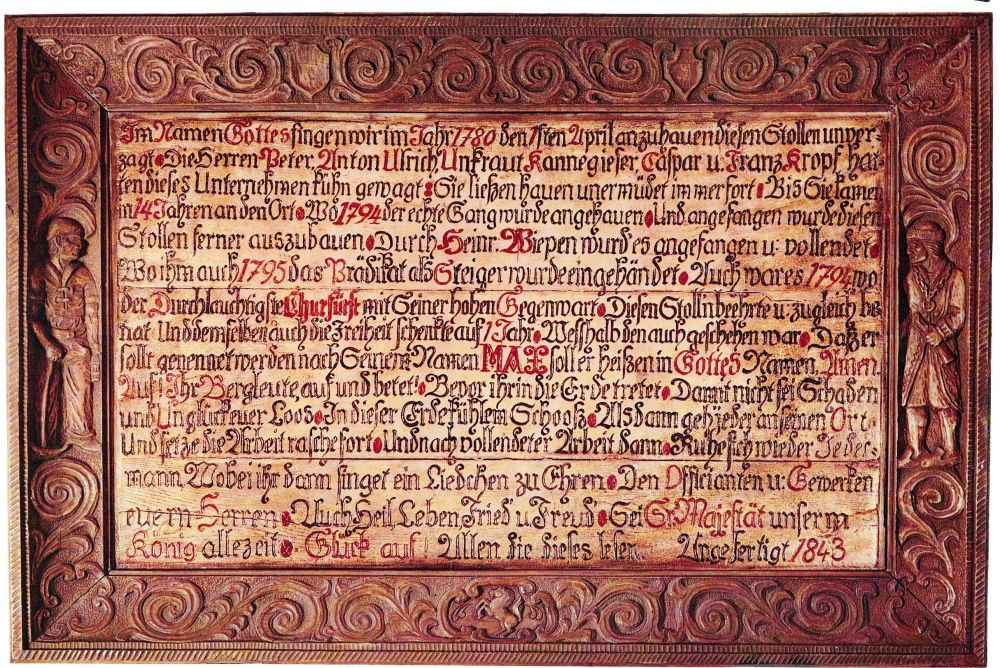 Im Namen Gottes fingen wir im Jahr 1780 den 1sten April anzuhauen diesen Stollen unver-
zagt • Die Herren Peter Anton Ulrich Unkraut Kannegieser Caspar u. Franz Kropf hat-
ten dieses Unternehmen kühn gewagt • Sie ließen hauen unermüdet immerfort • Bis Sie kamen
in 14 Jahren an den Ort • Wo 1794 der echte Gang wurde angehauen • Und angefangen wurde diesen
Stollen ferner auszubauen • Durch Heinr. Wiepen wurd es angefangen u: vollendet •
Wo ihm auch 1795 das Prädikat als Steiger wurde eingehändet • Auch war es 1794 wo
der Durchlauchtigste Churfürst mit Seiner hohen Gegenwart • Diesen Stolln beehrte u: zugleich be
hat Und demselben auch die Freiheit schenkte auf 1 Jahr • Wesshalb den auch geschehen war • Daß er
sollt genennet werden nach Seinem Namen MAX soll er heißen in Gottes Namen, Amen.
Auf! Ihr Bergleute, auf und betet! • Bevor ihr in die Erde tretet • Damit nicht sei Schaden
und Unglück euer Loos • In dieser Erde kühlem Schooß • Alsdann geh jeder an seinen Ort •
Und setze die Arbeit rasche fort • Und nach vollendeter Arbeit dann • Ruhe sich wieder Jeder-
mann Wobei ihr dann singet ein Liedchen zu Ehren • Den Officianten u: Gewerken
euern Herren • Auch Heil Leben Fried u Freud • Sei Sr. Majestät unserm
König allezeit • Glück auf! Allen die dieses lesen Angefertigt 1843